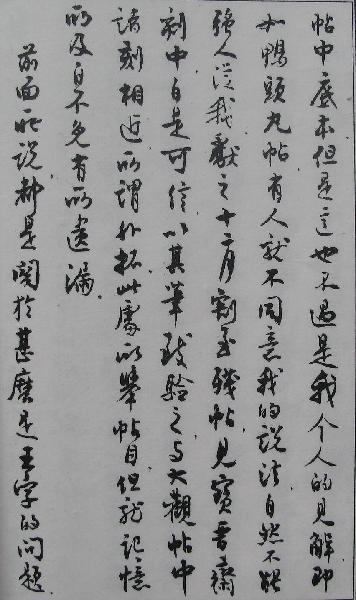 帖中底本但是这也不过是我个人的見解即
如鴨頭丸帖有人就不同意我的說法自然不能
強人從我獻之十二月割至殘帖見寶晉齋
刻中自是可信以其筆致驗之与大觀帖中
諸刻相近所謂外拓此處所舉帖目但就記憶
所及自不免有所遺漏
前面所說都是關於甚麼是王字的問題